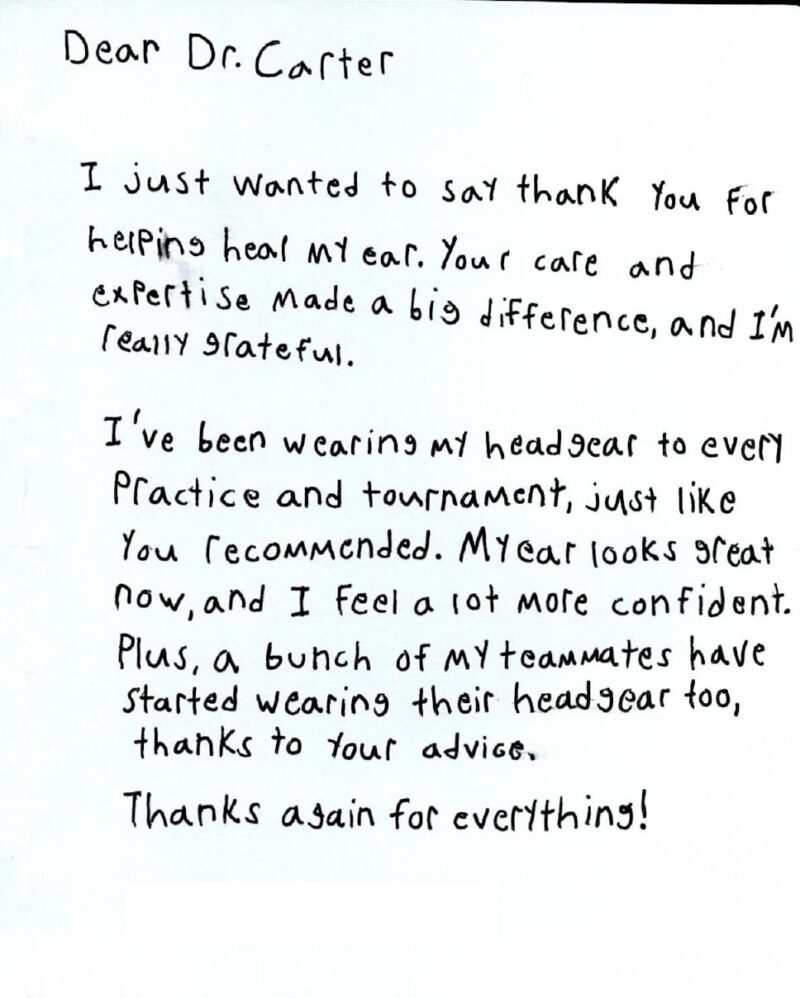 Dear Dr. Carter
I just wanted to say thank you for
helping heal my ear. Your care and
expertise made a big difference, and I'm
really grateful.
I've been wearing my headgear to every
practice and tournament, just like
you recommended. My ear looks great
now, and I feel a lot more confident.
Plus, a bunch of my teammates have
started wearing their headgear too,
thanks to your advice.
Thanks again for everything!